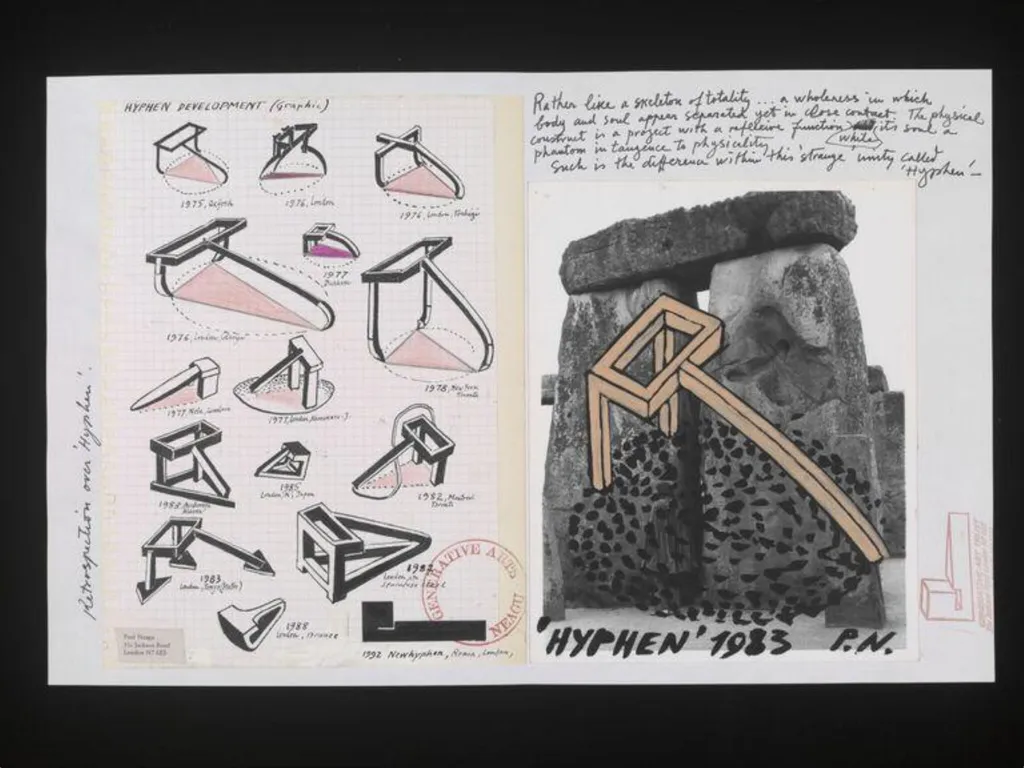 HYPHEN DEVELOPMENT (Graphic)
1975, Oxford
1976, London
1976, London,
1976, London,
1977
1978, New York
1977, London
1977, London,
1985
London, Japan
1982, Montreal
Toronto
1983
London, Tokyo
London,
1988
London, France
1992 Newhyphen, London,
Paul Neagu
31c Jackson Road
London N7 6ES
GENERATIVE ARTS
NEAGU
Retrospection over 'Hyphen'.
Rather like a skeleton of totality ... a wholeness in which
body and soul appear separated yet in close contact. The physical
construct is a project with a reflexive function while its soul a
phantom in tangence to physicality
Such is the difference within this strange unity called
'Hyphen' –
'HYPHEN' 1983 P.N.